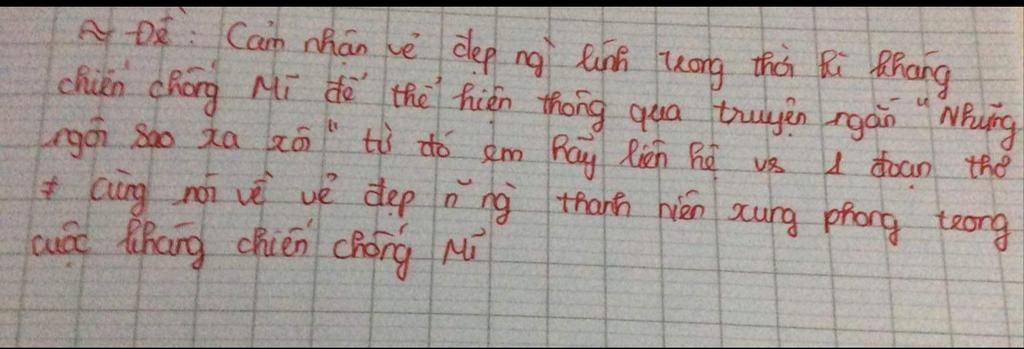 ~ Đề: Cảm nhận vẻ đẹp ng` lính trong thời kì kháng
chiến chống Mĩ để thể hiện thông qua truyện ngắn "Những
ngôi sao xa xôi" từ đó em hãy liên hệ vs 1 đoạn thơ
cũng nói về vẻ đẹp ~ ng` thanh niên xung phong trong
cuộc kháng chiến chống Mĩ